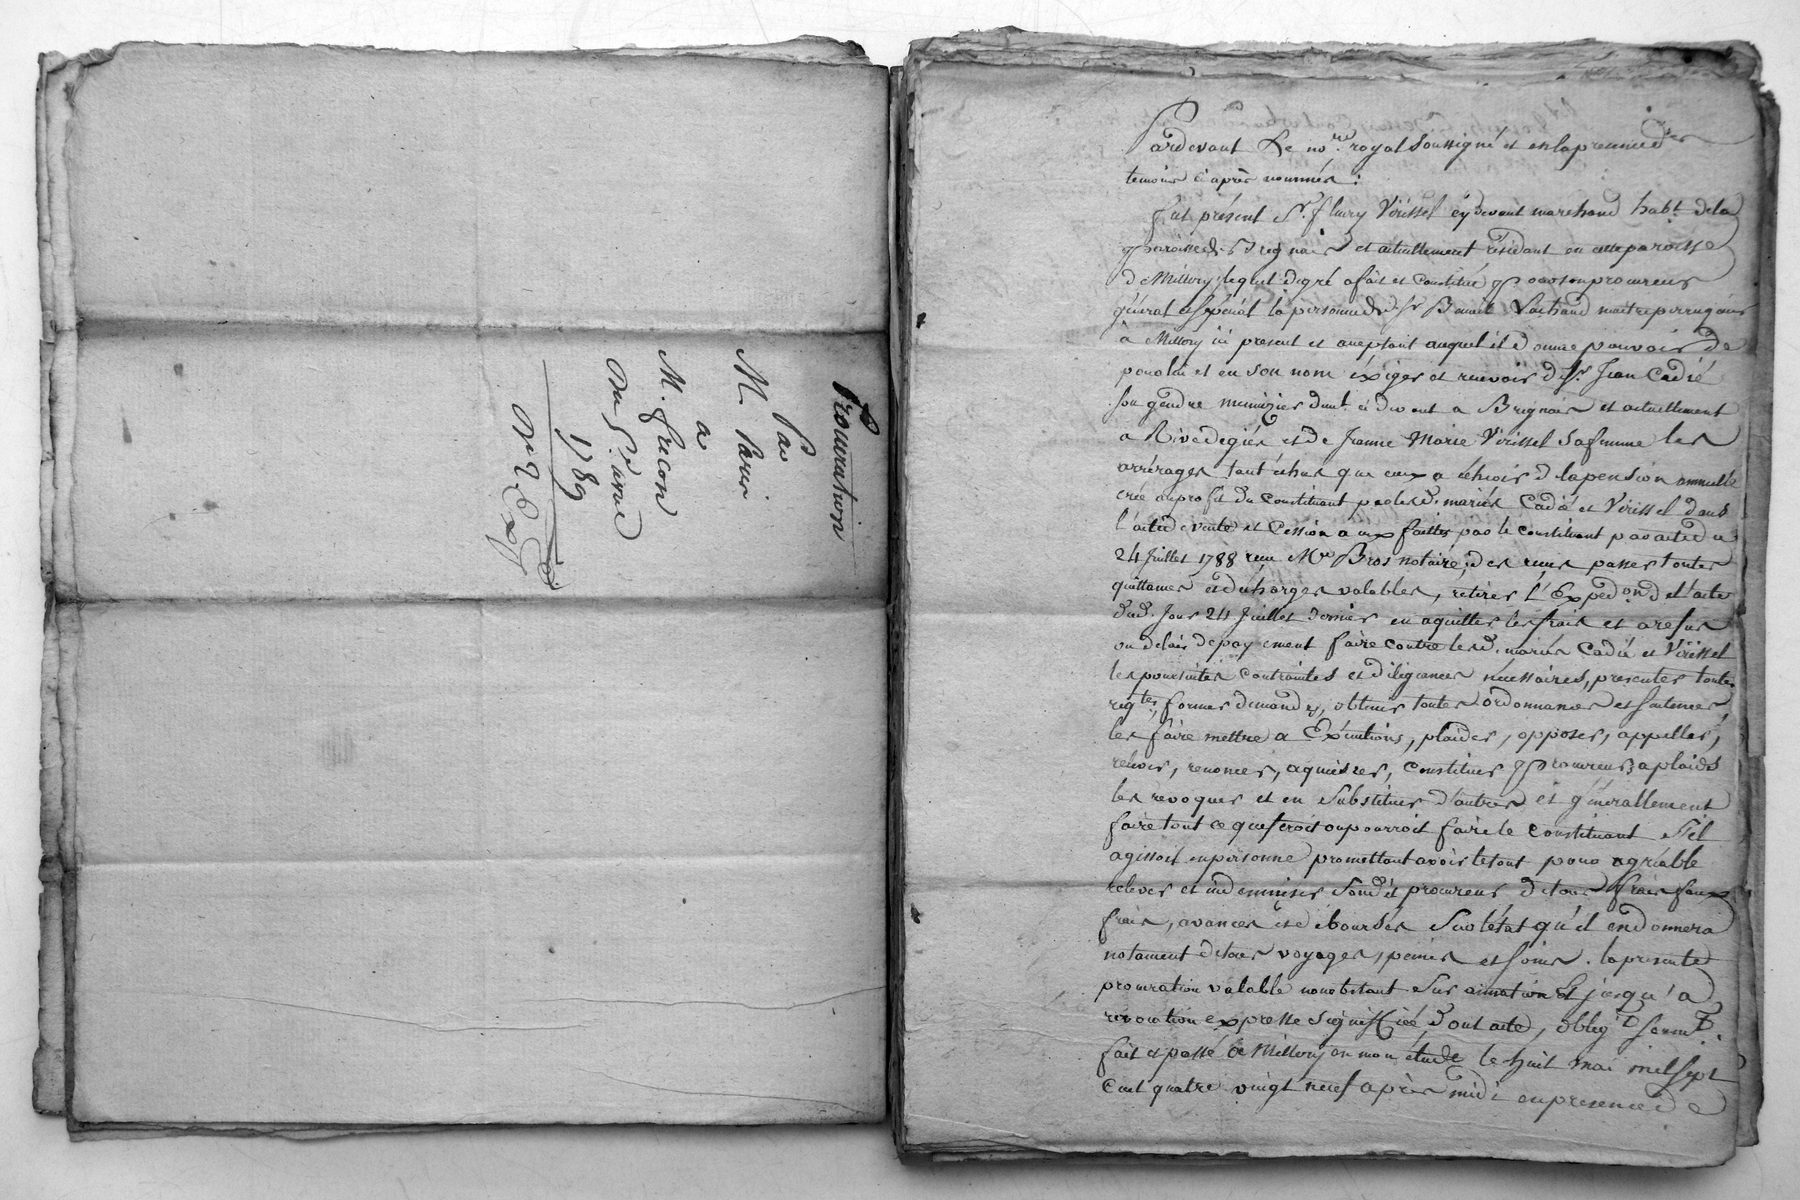 Procuration
Par
M. Paris
a
M. fricon
Du 8e avril
1789
Pardevant Le nore. royal soussigné et en la presence des
temoins ci après nommés :
fut présent Sr. fleury Virissel cydevant marchand habt. de la
paroisse de Brignais et actuellement résidant en cette paroisse
de Millery, lequel de gré a fait et constitué pour son procureur
général et spécial la personne de Sr Benoit Vachand maitre perruquier
à Millery ici present et aceptant auquel il donne pouvoir de
pour lui et en son nom éxiger et recevoir de Sr. Jean Cadié
son gendre menuizier demt. ci devant a Brignais et actuellement
a Rivedegiés et de Jeanne Marie Virissel sa femme les
arrérages tant échus que ceux a échoir de la pension annuelle
créé au profit du constituant par lesd. mariés Cadié et Virissel dans
l'acte de vente et Cession a eux faittes par le constituant par acte du
24 Juillet 1788 reçu Me Bros notaire, des reçus passer toutes
quittances et décharges valables, retirer l'Expedon. de l'acte
dud. Jour 24 Juillet dernier en aquitter les frais et a refus
ou délai de payement faire contre lesd. mariés Cadié et Virissel
les poursuites contraintes et diligences nécessaires, presenter toutes
reqtes, former demandes, obtenir toutes ordonnances et sentences
les faire mettre a Exécutions, plaider, opposer, appeller,
relever, renoncer, aquiescer, constituer procureurs a plaids
les revoquer et en substituer d'autres et générallement
faire tout ce que feroit ou pourroit faire le constituant s'il
agissoit en personne promettant avoir le tout pour agréable
relever et indemniser sond. procureur de tous frais faux
frais, avances et débourses sur l'état qu'il en donnera
notament de tous voyages, peines et soins. la presente
procuration valable nonobstant surannation et jusqu'a
révocation expresse signiffiée, dont acte, oblig. serm.
fait et passé a Millery en mon étude le huit mai mil sept
cent quatre vingt neuf après midi en presence de